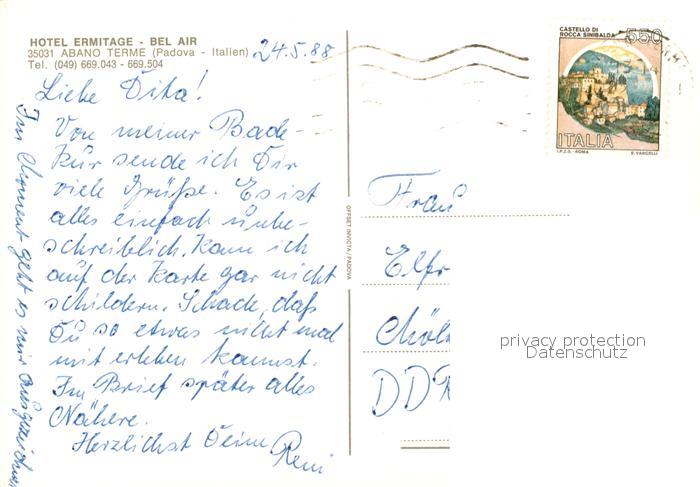 HOTEL ERMITAGE - BEL AIR
35031 ABANO TERME (Padova - Italien)
Tel. (049) 669.043 - 669.504
24.5.88
Liebe Dita!
Von meiner Bade-
kur sende ich Dir
viele Grüße. Es ist
alles einfach unbe-
schreiblich. Kann ich
auf der Karte gar nicht
schildern. Schade, daß
Du so etwas nicht mal
mit erleben kannst.
Im Brief später alles
Nähere.
Herzlichst Deine Reni
Im Moment geht es mir ausgezeichnet
OFFSET INVICTA / PADOVA
CASTELLO DI
ROCCA SINIBALDA 550
ITALIA
I.P.Z.S. - ROMA E. VANGELLI
Frau
Elfr
DDR
privacy protection
Datenschutz